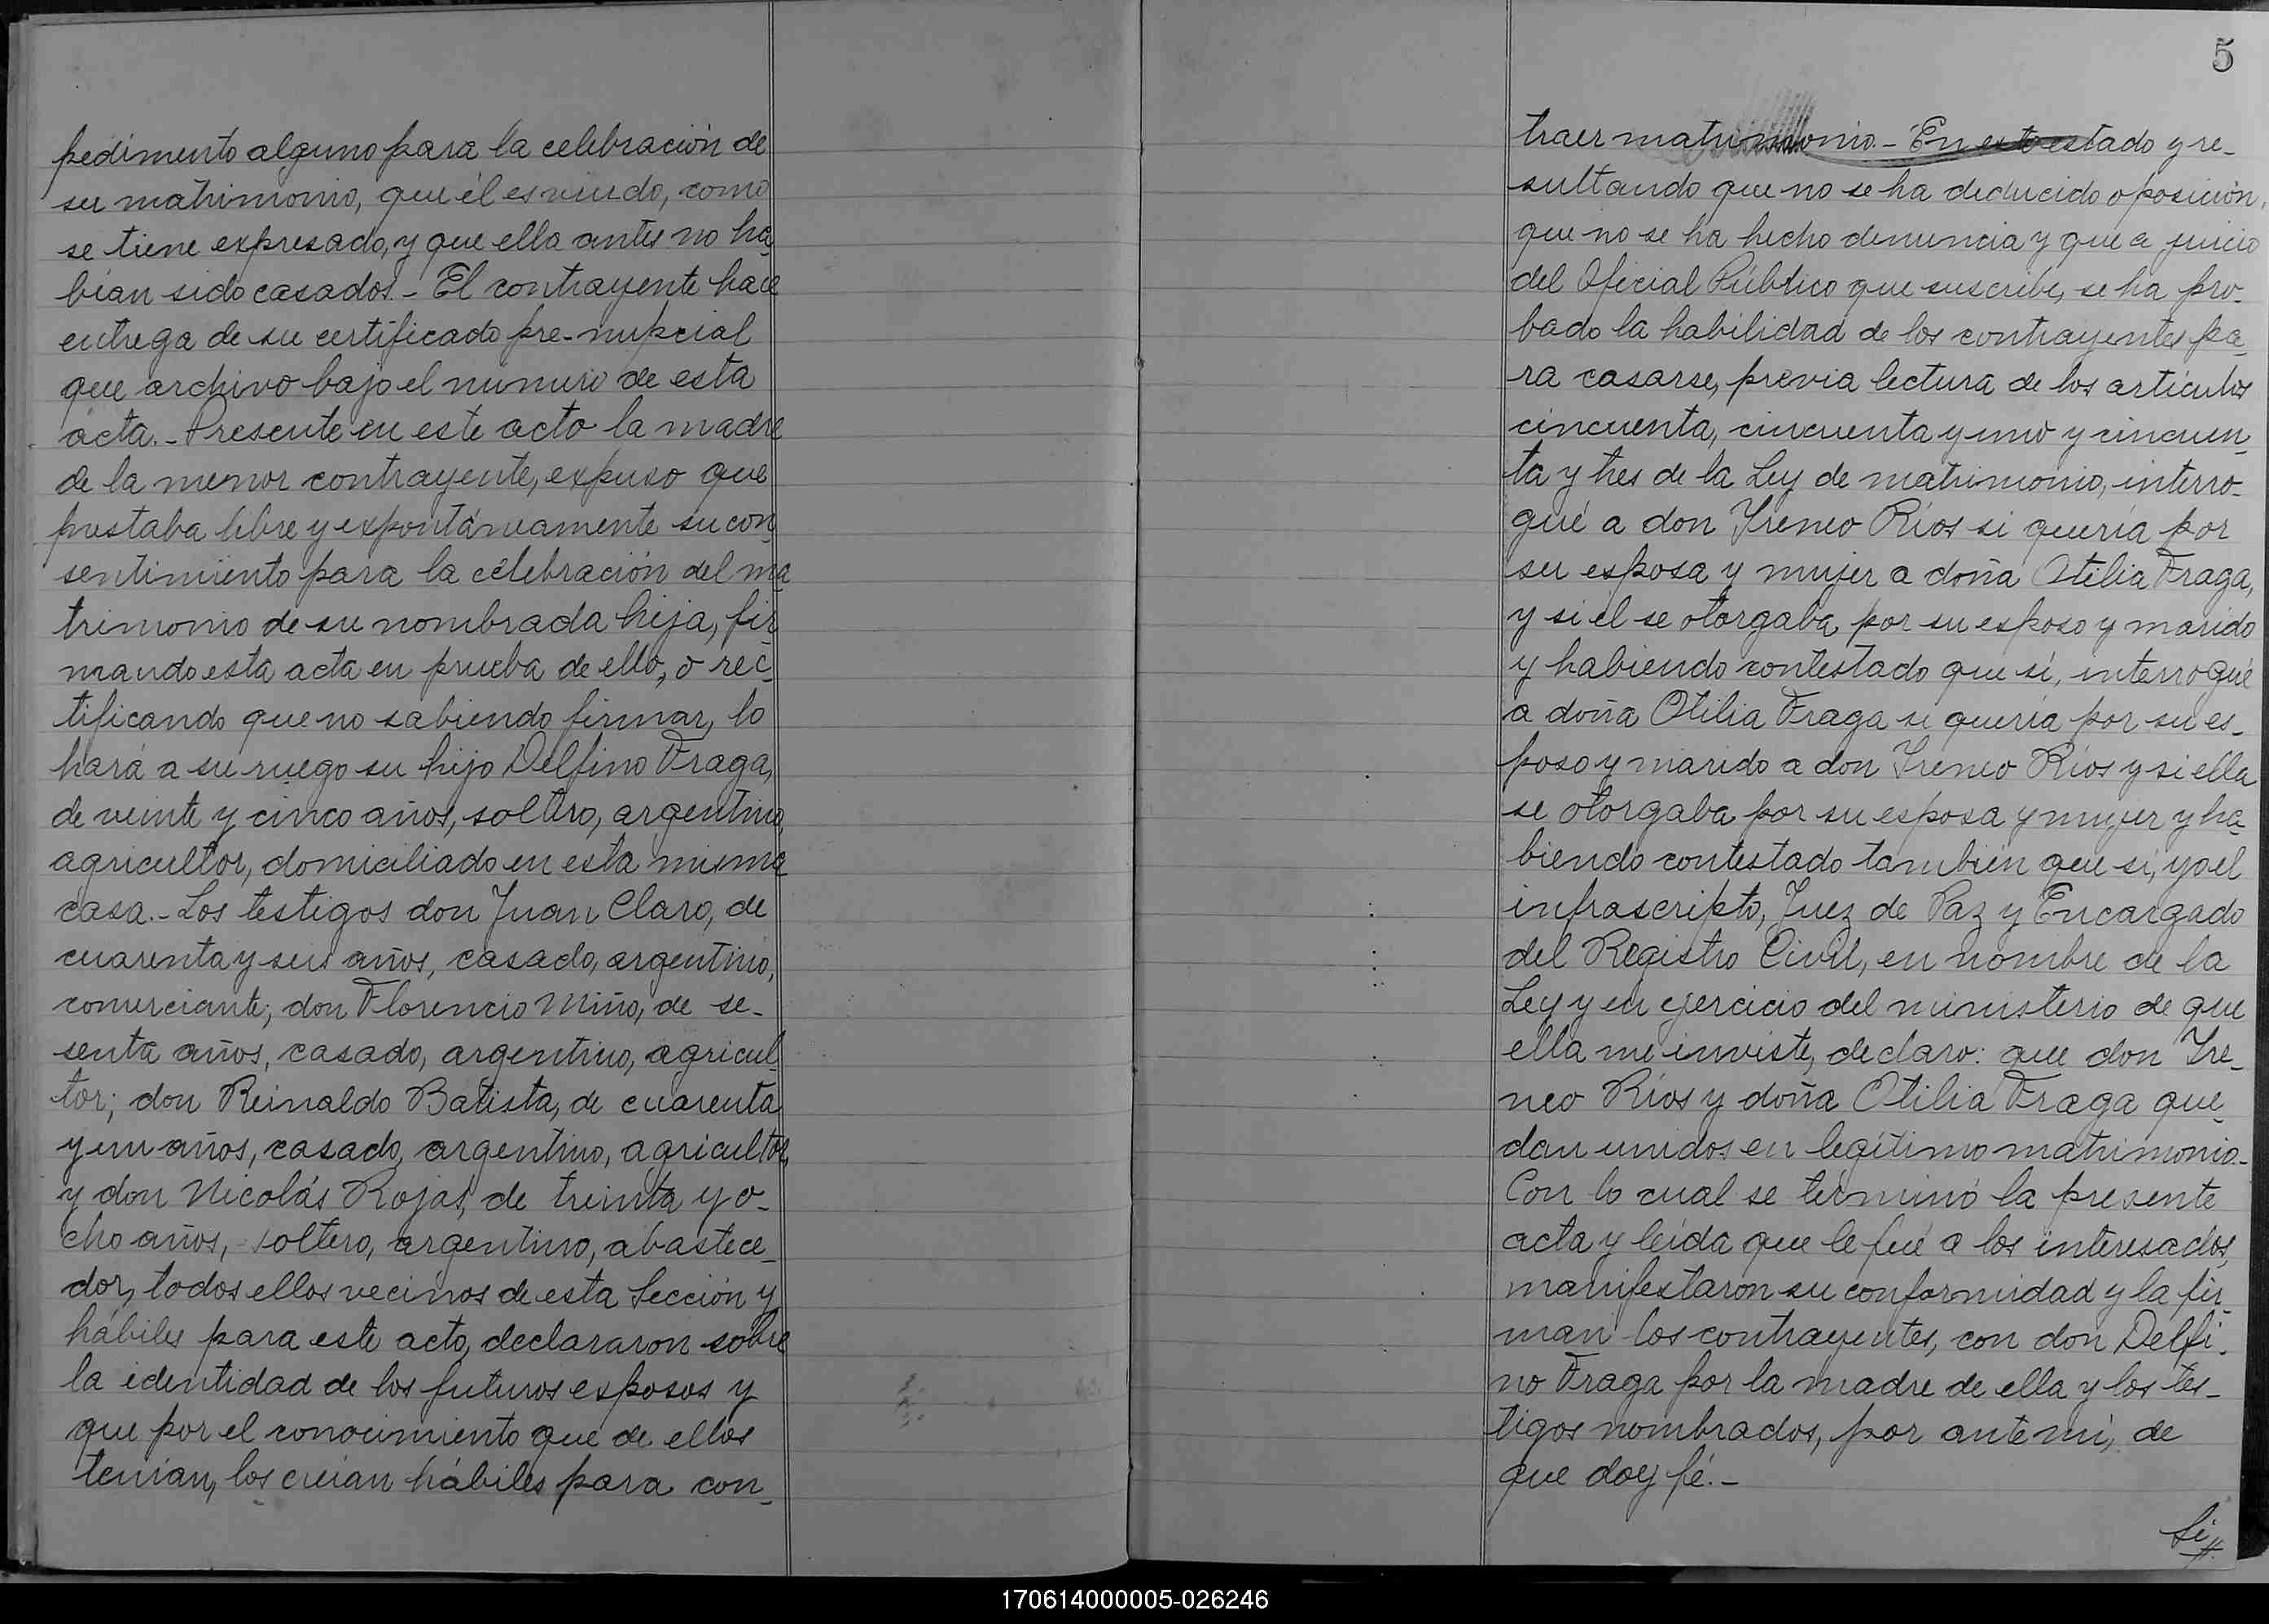 pedimento alguno para la celebración de
su matrimonio, que él es viudo, como
se tiene expresado, y que ella antes no ha
bian sido casados.- El contrayente hace
entrega de su certificado pre-nupcial
que archivo bajo el número de esta
acta.- Presente en este acto la madre
de la menor contrayente, expuso que
prestaba libre y expontáneamente su con
sentimiento para la celebración del ma
trimonio de su nombrada hija, fir
mando esta acta en prueba de ello, o rec
tificando que no sabiendo firmar, lo
hará a su ruego su hijo Delfino Fraga,
de veinte y cinco años, soltero, argentino,
agricultor, domiciliado en esta misma
casa.- Los testigos don Juan Claro, de
cuarenta y seis años, casado, argentino,
comerciante; don Florencio Miño, de se-
senta años, casado, argentino, agricul
tor; don Reinaldo Batista, de cuarenta
y un años, casado, argentino, agricultor,
y don Nicolás Rojas, de treinta y o-
cho años, soltero, argentino, abastece-
dor, todos ellos vecinos de esta Sección y
hábiles para este acto, declararon sobre
la identidad de los futuros esposos y
que por el conocimiento que de ellos
tenían, los creían hábiles para con-
5
traer matrimonio.- En este estado y re-
sultando que no se ha deducido oposición,
que no se ha hecho denuncia y que a juicio
del Oficial Público que suscribe, se ha pro-
bado la habilidad de los contrayentes pa-
ra casarse, previa lectura de los artículos
cincuenta, cincuenta y uno y cincuen-
ta y tres de la Ley de matrimonio, interro-
gué a don Ireneo Ríos si quería por
su esposa y mujer a doña Otilia Fraga,
y si él se otorgaba por su esposo y marido
y habiendo contestado que sí, interrogué
a doña Otilia Fraga si quería por su es-
poso y marido a don Ireneo Ríos y si ella
se otorgaba por su esposa y mujer y ha-
biendo contestado también que sí, yo el
infrascripto, Juez de Paz y Encargado
del Registro Civil, en nombre de la
Ley y en ejercicio del ministerio de que
ella me inviste, declaro: que don Ire-
neo Ríos y doña Otilia Fraga que-
dan unidos en legítimo matrimonio.-
Con lo cual se terminó la presente
acta y leída que le fué a los interesados,
manifestaron su conformidad y la fir-
man los contrayentes, con don Delfi-
no Fraga por la madre de ella y los tes-
tigos nombrados, por ante mí, de
que doy fé.-
Si//
170614000005-026246